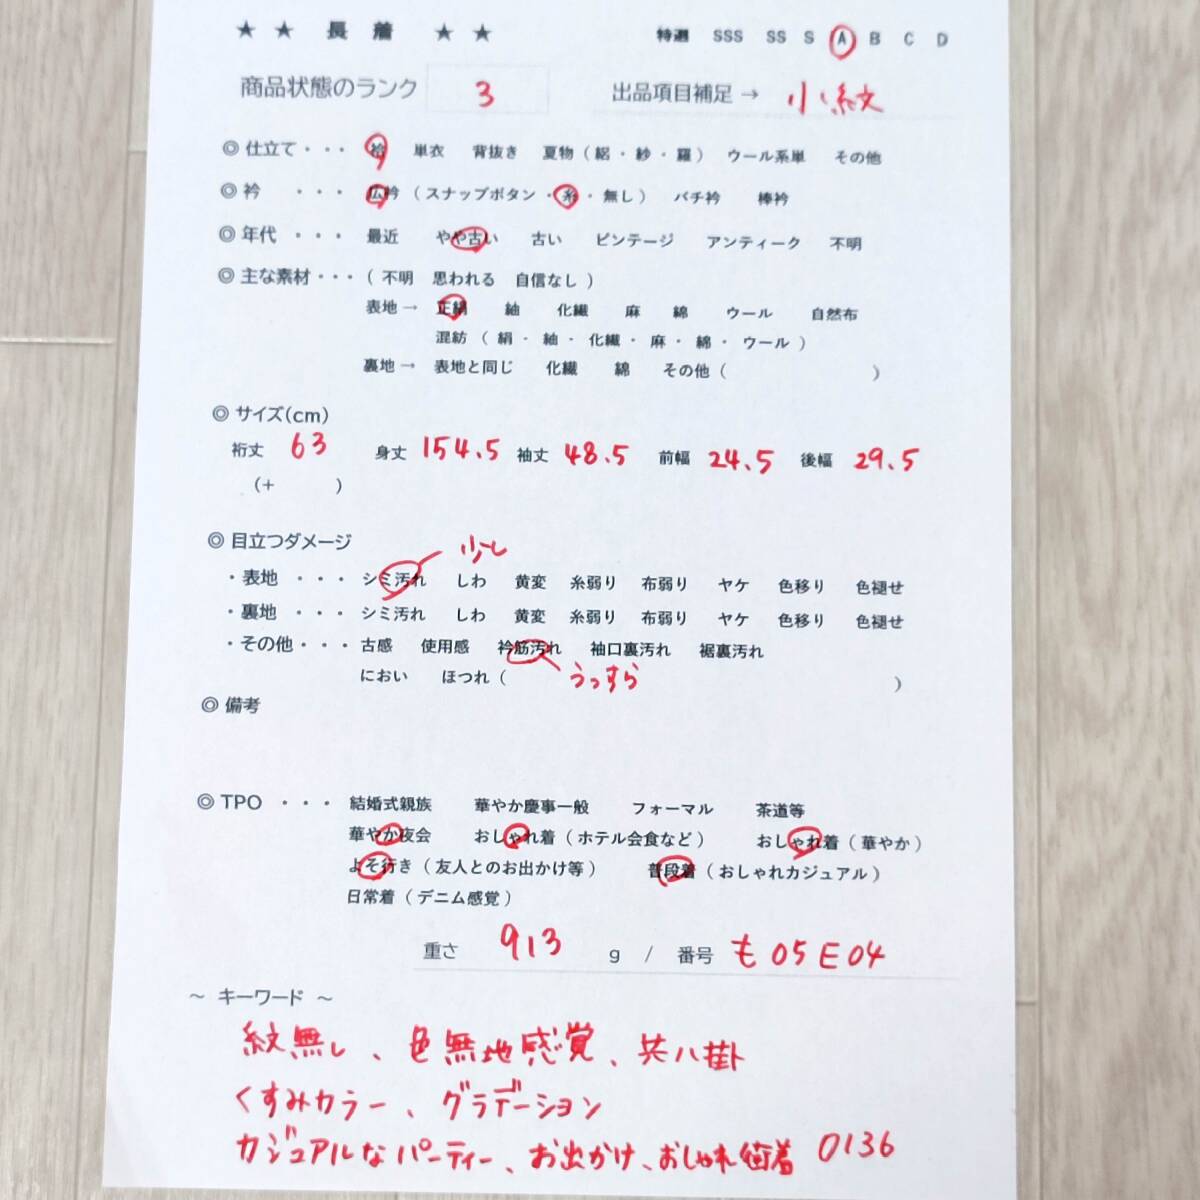 ★ ★ 長 着 ★ ★ 特選 SSS SS S A B C D
商品状態のランク 3 出品項目補足 → 小紋
◎ 仕立て・・・ 袷 単衣 背抜き 夏物（絽・紗・羅） ウール系単 その他
◎ 衿 ・・・ 広衿（スナップボタン・糸・無し） バチ衿 棒衿
◎ 年代 ・・・ 最近 やや古い 古い ビンテージ アンティーク 不明
◎ 主な素材・・・（ 不明 思われる 自信なし ）
表地 → 正絹 紬 化繊 麻 綿 ウール 自然布
混紡（ 絹 ・ 紬 ・ 化繊 ・ 麻 ・ 綿 ・ ウール ）
裏地 → 表地と同じ 化繊 綿 その他（ ）
◎ サイズ(cm)
裄丈 63 身丈 154.5 袖丈 48.5 前幅 24.5 後幅 29.5
(+ )
◎ 目立つダメージ 少し
・表地 ・・・ シミ汚れ しわ 黄変 糸弱り 布弱り ヤケ 色移り 色褪せ
・裏地 ・・・ シミ汚れ しわ 黄変 糸弱り 布弱り ヤケ 色移り 色褪せ
・その他・・・ 古感 使用感 衿筋汚れ 袖口裏汚れ 裾裏汚れ
におい ほつれ（ うっすら ）
◎ 備考
◎ TPO ・・・ 結婚式親族 華やか慶事一般 フォーマル 茶道等
華やか夜会 おしゃれ着（ホテル会食など） おしゃれ着（華やか）
よそ行き（友人とのお出かけ等） 普段着（おしゃれカジュアル）
日常着（デニム感覚）
重さ 913 g / 番号 も05E04
～ キーワード ～
紋無し、色無地感覚、共八掛
くすみカラー、グラデーション
カジュアルなパーティー、お出かけ、おしゃれ街着 0136